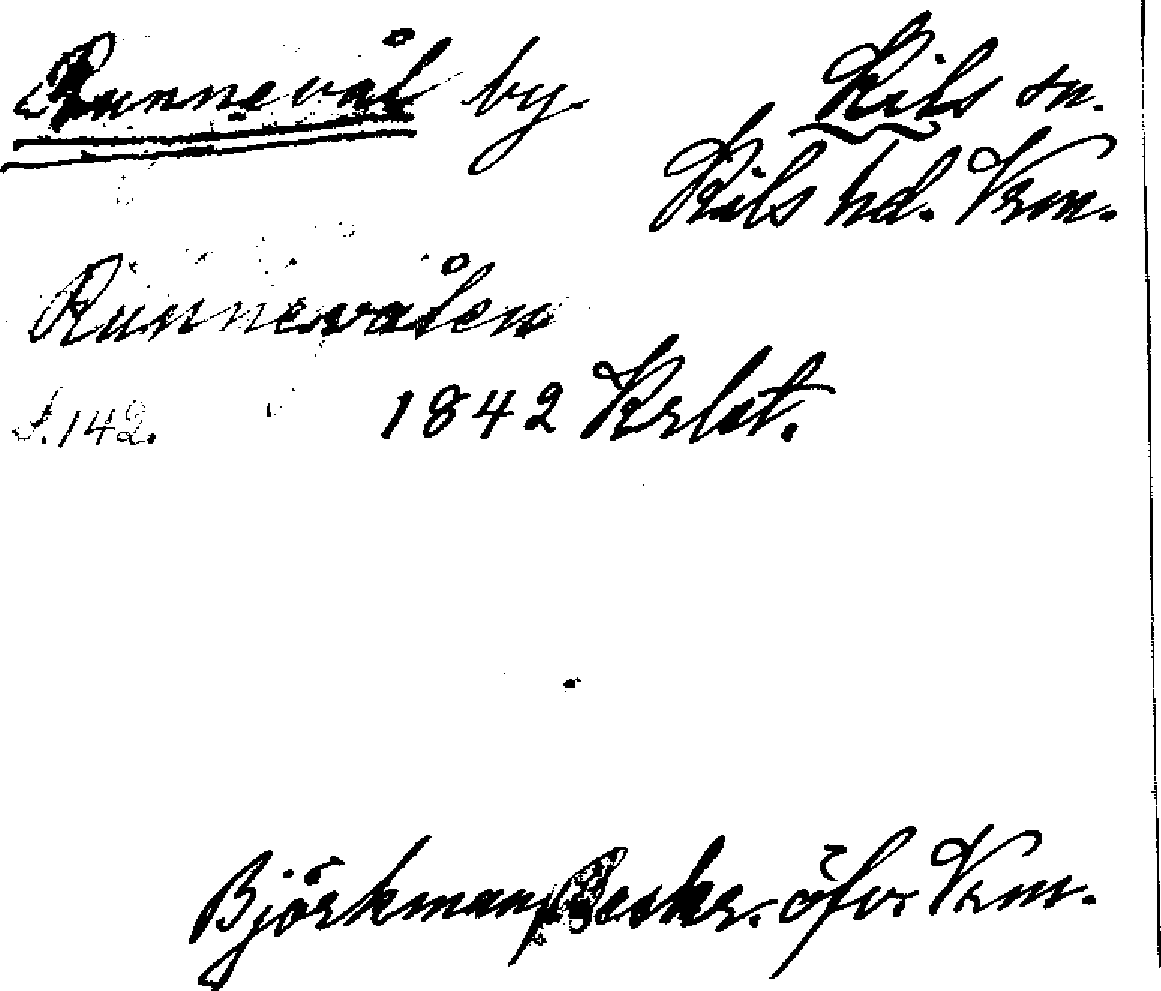 Runnevål by Kils sn.
Kils hd. Vrm.
Runnevålen
S. 142. 1842 Krlst.
Björkman, Beskr. öfver Vrm.